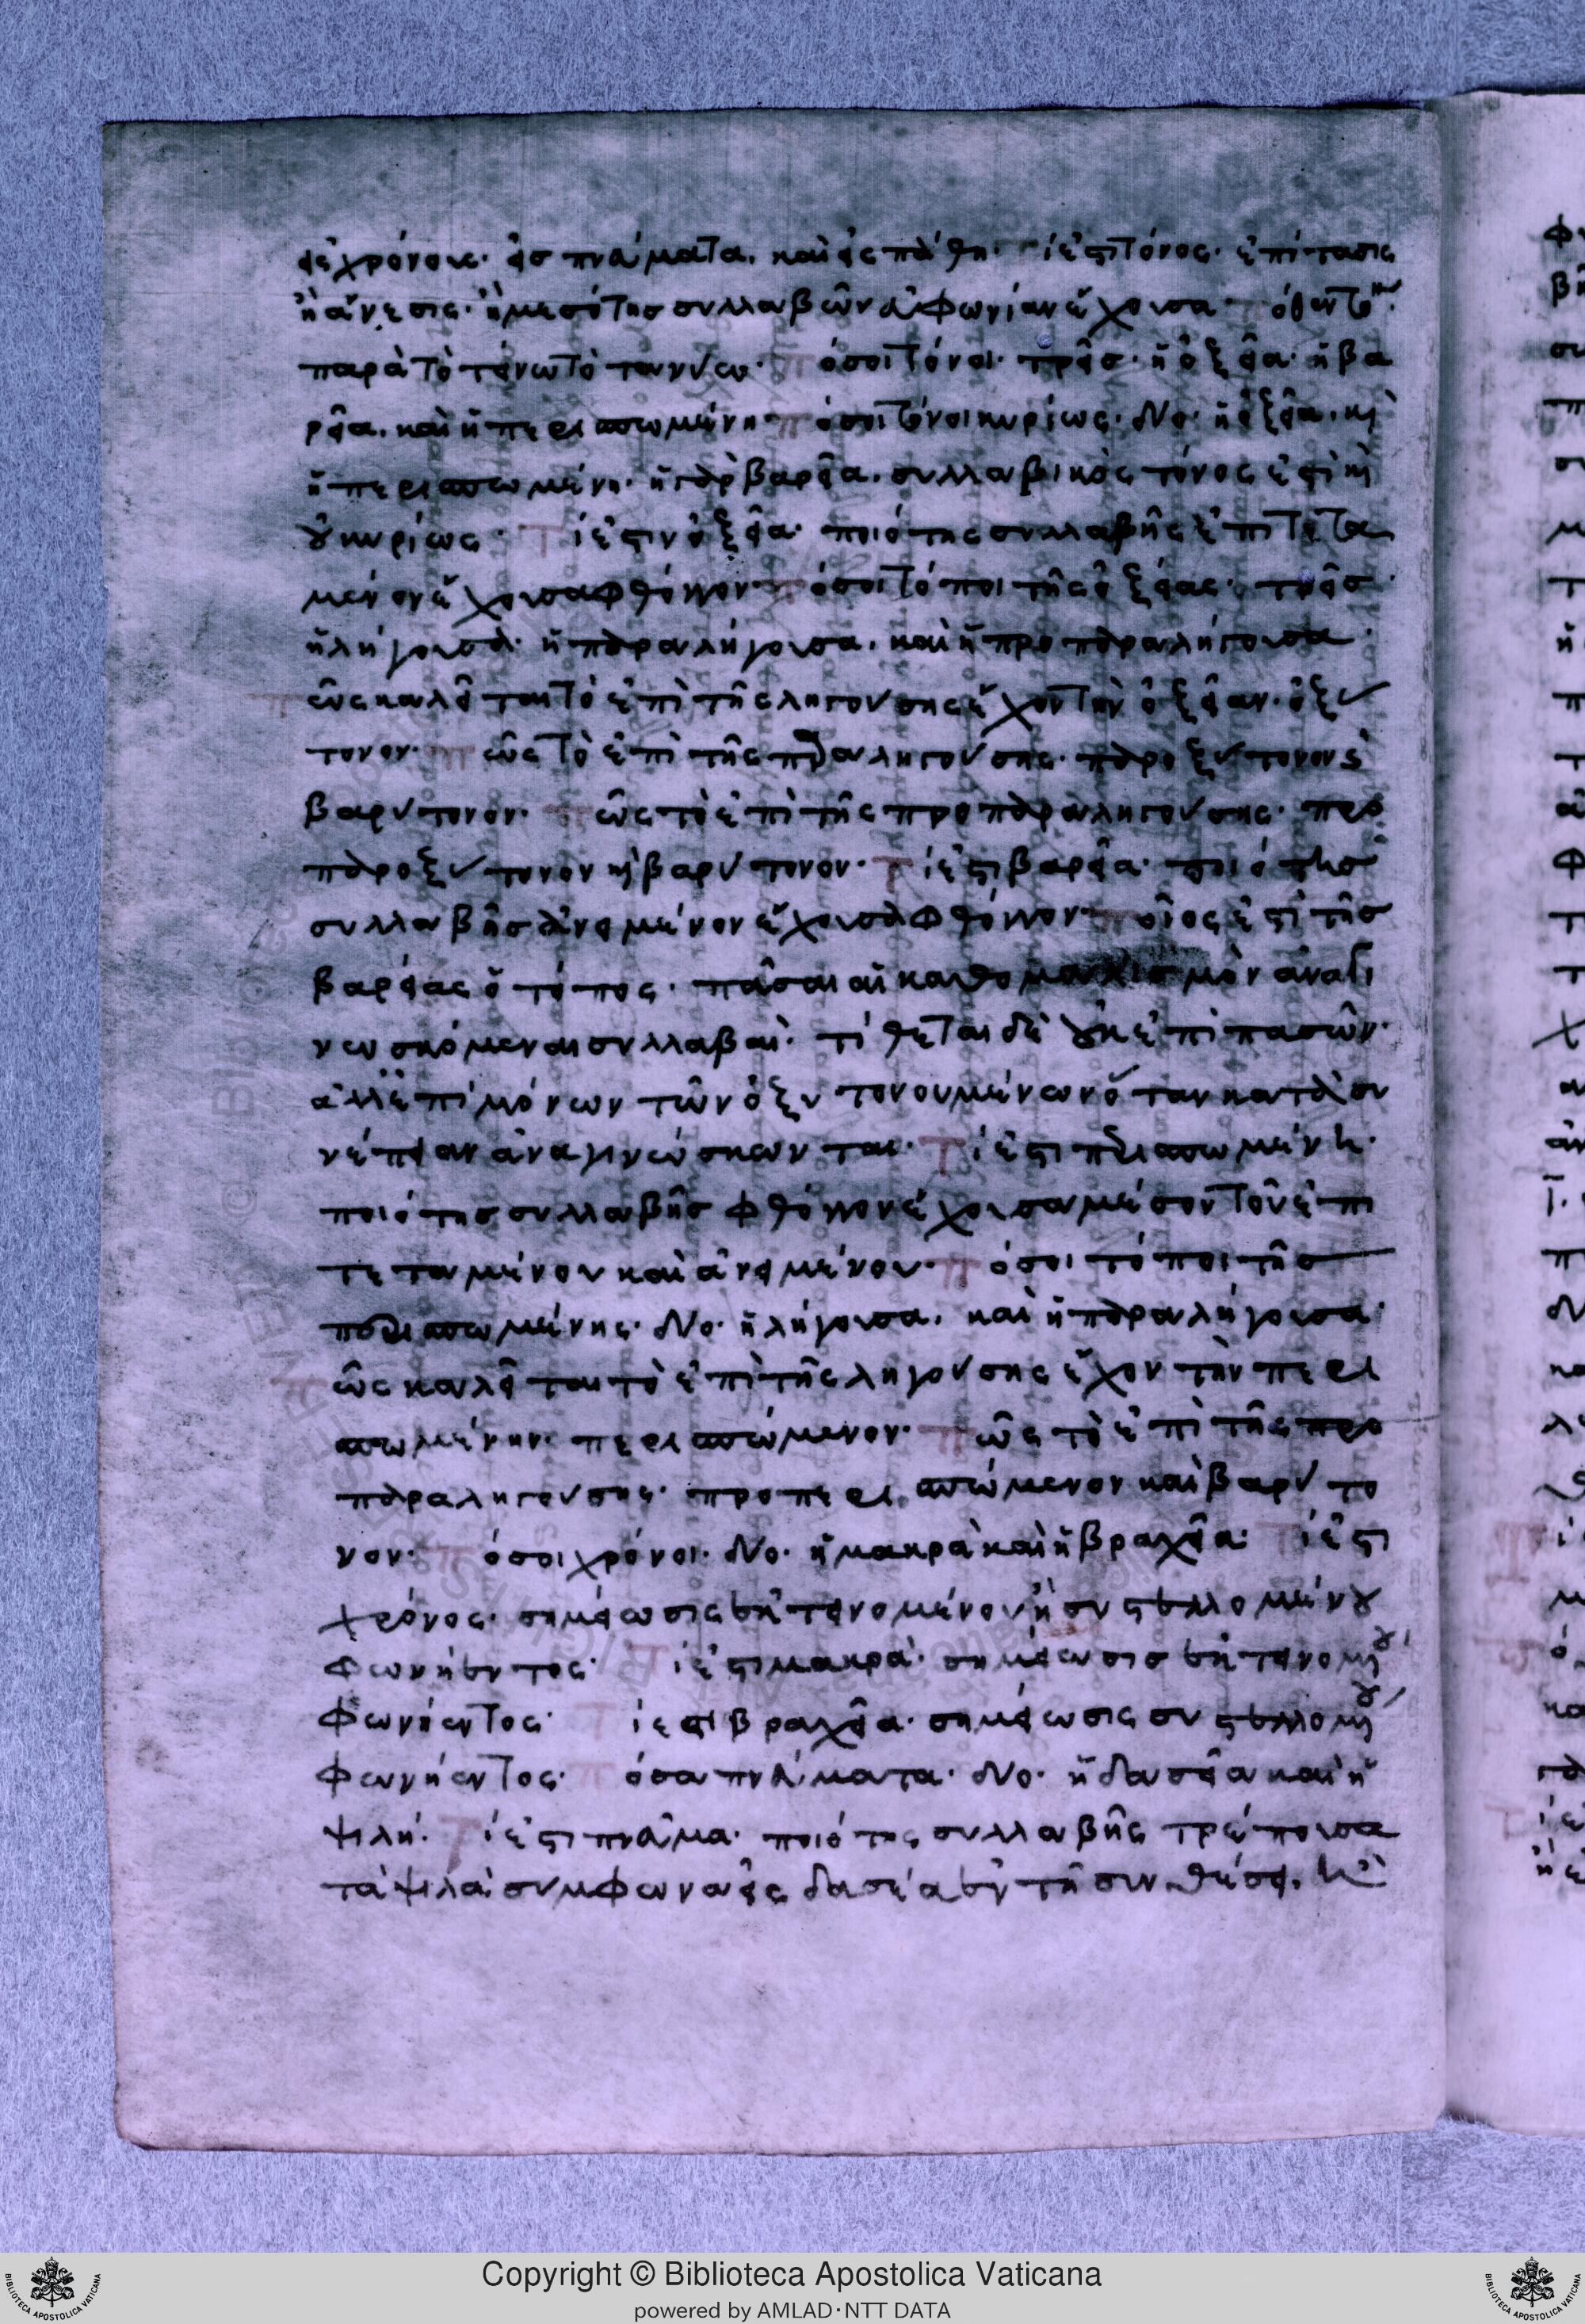 εἰς χρόνους· εἰς πνεύματα· καὶ εἰς πάθη· τί ἐστι τόνος· ἐπίτασις
ἢ ἄνεσις· ἢ μεσότης συλλαβῶν εὐφωνίαν ἔχουσα· πόθεν
παρὰ τὸ τείνω τὸ τανύω· πόσοι τόνοι· τρεῖς· ἡ ὀξεῖα· ἡ βα
ρεῖα· καὶ ἡ περισπωμένη· πόσοι τόνοι κυρίως· δύο· ἡ ὀξεῖα· καὶ
ἡ περισπωμένη· ἡ γὰρ βαρεῖα· συλλαβικὸς τόνος ἐστὶ καὶ
οὐ κυρίως· τί ἐστιν ὀξεῖα· ποιότης συλλαβῆς ἐπιτετα
μένον ἔχουσα φθόγγον· πόσοι τόποι τῆς ὀξείας· τρεῖς·
ἡ λήγουσα· ἡ παραλήγουσα· καὶ ἡ προπαραλήγουσα·
πῶς καλεῖται τὸ ἐπὶ τῆς ληγούσης ἔχον τὴν ὀξεῖαν· ὀξύ
τονον· πῶς τὸ ἐπὶ τῆς παραληγούσης· παροξύτονον καὶ
βαρύτονον· πῶς τὸ ἐπὶ τῆς προπαραληγούσης· προ
παροξύτονον καὶ βαρύτονον· τί ἐστι βαρεῖα· ποιότης
συλλαβῆς ἀνειμένον ἔχουσα φθόγγον· ποῖος ἐστὶ τῆς
βαρείας ὁ τόπος· πᾶσαι αἱ καθομαλισμὸν ἀναγι
νωσκόμεναι συλλαβαί· τίθεται δὲ οὐκ ἐπὶ πασῶν·
ἀλλ' ἐπὶ μόνων τῶν ὀξυτονουμένων ὅταν κατὰ συ
νέπειαν ἀναγινώσκωνται· τί ἐστι περισπωμένη·
ποιότης συλλαβῆς φθόγγον ἔχουσα μέσον τοῦ ἐπι
τεταμένου καὶ ἀνειμένου· πόσοι τόποι τῆς
περισπωμένης· δύο· ἡ λήγουσα· καὶ ἡ παραλήγουσα·
πῶς καλεῖται τὸ ἐπὶ τῆς ληγούσης ἔχον τὴν περι
σπωμένην· περισπώμενον· πῶς τὸ ἐπὶ τῆς προ
παραληγούσης· προπερισπώμενον καὶ βαρύτο
νον· πόσοι χρόνοι· δύο· ἡ μακρὰ καὶ ἡ βραχεῖα· τί ἐστι
χρόνος· σημείωσις ἐκτεινομένου ἢ συστελλομένου
φωνήεντος· τί ἐστι μακρά· σημείωσις ἐκτεινομένου
φωνήεντος· τί ἐστι βραχεῖα· σημείωσις συστελλομένου
φωνήεντος· πόσα πνεύματα· δύο· ἡ δασεῖα καὶ ἡ
ψιλή· τί ἐστι πνεῦμα· ποιότης συλλαβῆς τρέπουσα
τὰ ψιλὰ σύμφωνα εἰς δασέα ἐν τῇ συνθέσει· καὶ
Copyright © Biblioteca Apostolica Vaticana
powered by AMLAD·NTT DATA